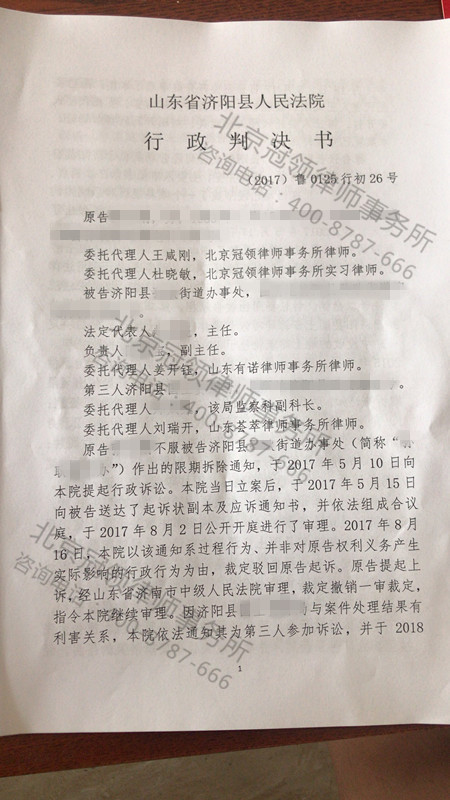 山东省济阳县人民法院
行政判决书
(2017)鲁0125行初26号
原告
委托代理人王咸刚,北京冠领律师事务所律师。
委托代理人杜晓敏,北京冠领律师事务所实习律师。
被告济阳县 街道办事处,
。
法定代表人 ,主任。
负责人 ,副主任。
委托代理人姜开钰,山东有诺律师事务所律师。
第三人济阳县 。
委托代理人 该局监察科副科长。
委托代理人刘瑞开,山东荟萃律师事务所律师。
原告 不服被告济阳县 街道办事处(简称“
”)作出的限期拆除通知,于2017年5月10日向
本院提起行政诉讼。本院当日立案后,于2017年5月15日
向被告送达了起诉状副本及应诉通知书,并依法组成合议
庭,于2017年8月2日公开开庭进行了审理。2017年8月
16日,本院以该通知系过程行为、并非对原告权利义务产生
实际影响的行政行为为由,裁定驳回原告起诉。原告提起上
诉,经山东省济南市中级人民法院审理,裁定撤销一审裁定,
指令本院继续审理。因济阳县 局与案件处理结果有
利害关系,本院依法通知其为第三人参加诉讼,并于2018
1
北京冠领律师事务所
咨询电话:400-8787-666
北京冠领律师事务所
咨询电话:400-8787-666
北京冠领律师事务所
咨询电话:400-8787-666